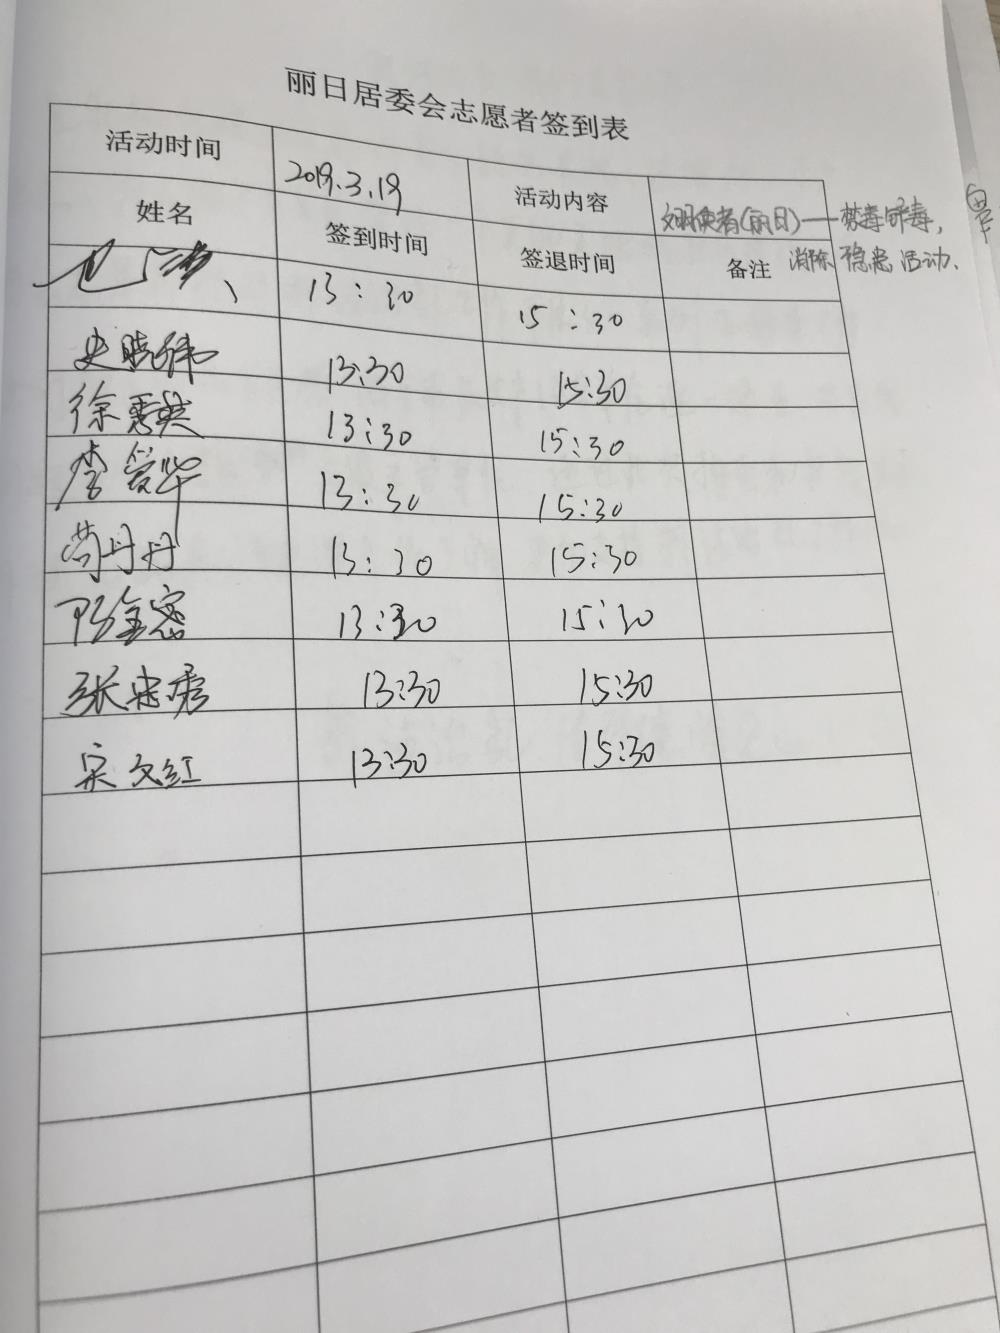 丽日居委会志愿者签到表
活动时间 2019.3.19 活动内容 文明使者(丽日)——禁毒
消除隐患活动、
姓名 签到时间 签退时间 备注
13:30 15:30
史晓伟 13:30 15:30
徐秀英 13:30 15:30
李爱华 13:30 15:30
苟丹丹 13:30 15:30
13:30 15:30
张 13:30 15:30
宋文红 13:30 15:30